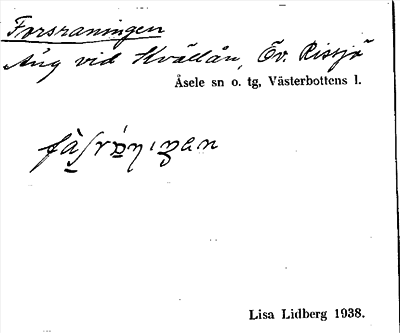 Forsraningen
Äng vid Kvällån, Öv. Rissjö
Åsele sn o. tg, Västerbottens l.
Lisa Lidberg 1938.